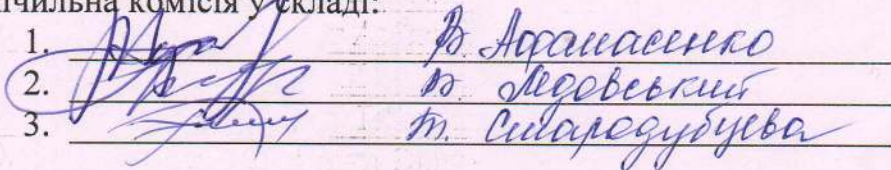 лічильна комісія у складі:
1. В. Афанасенко
2. В. Лядовський
3. Т. Стародубцева